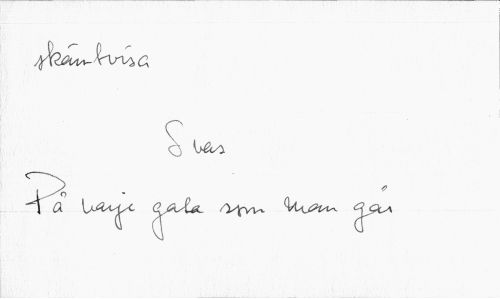 skämtvisa
Svas
På varje gata som man går